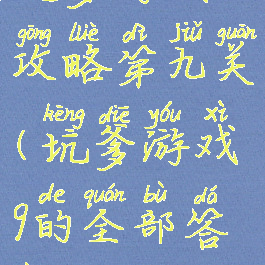 gōng lüè dì jiǔ guān
攻略第九关
kēng diē yóu xì
(坑爹游戏
de quán bù dá
9的全部答